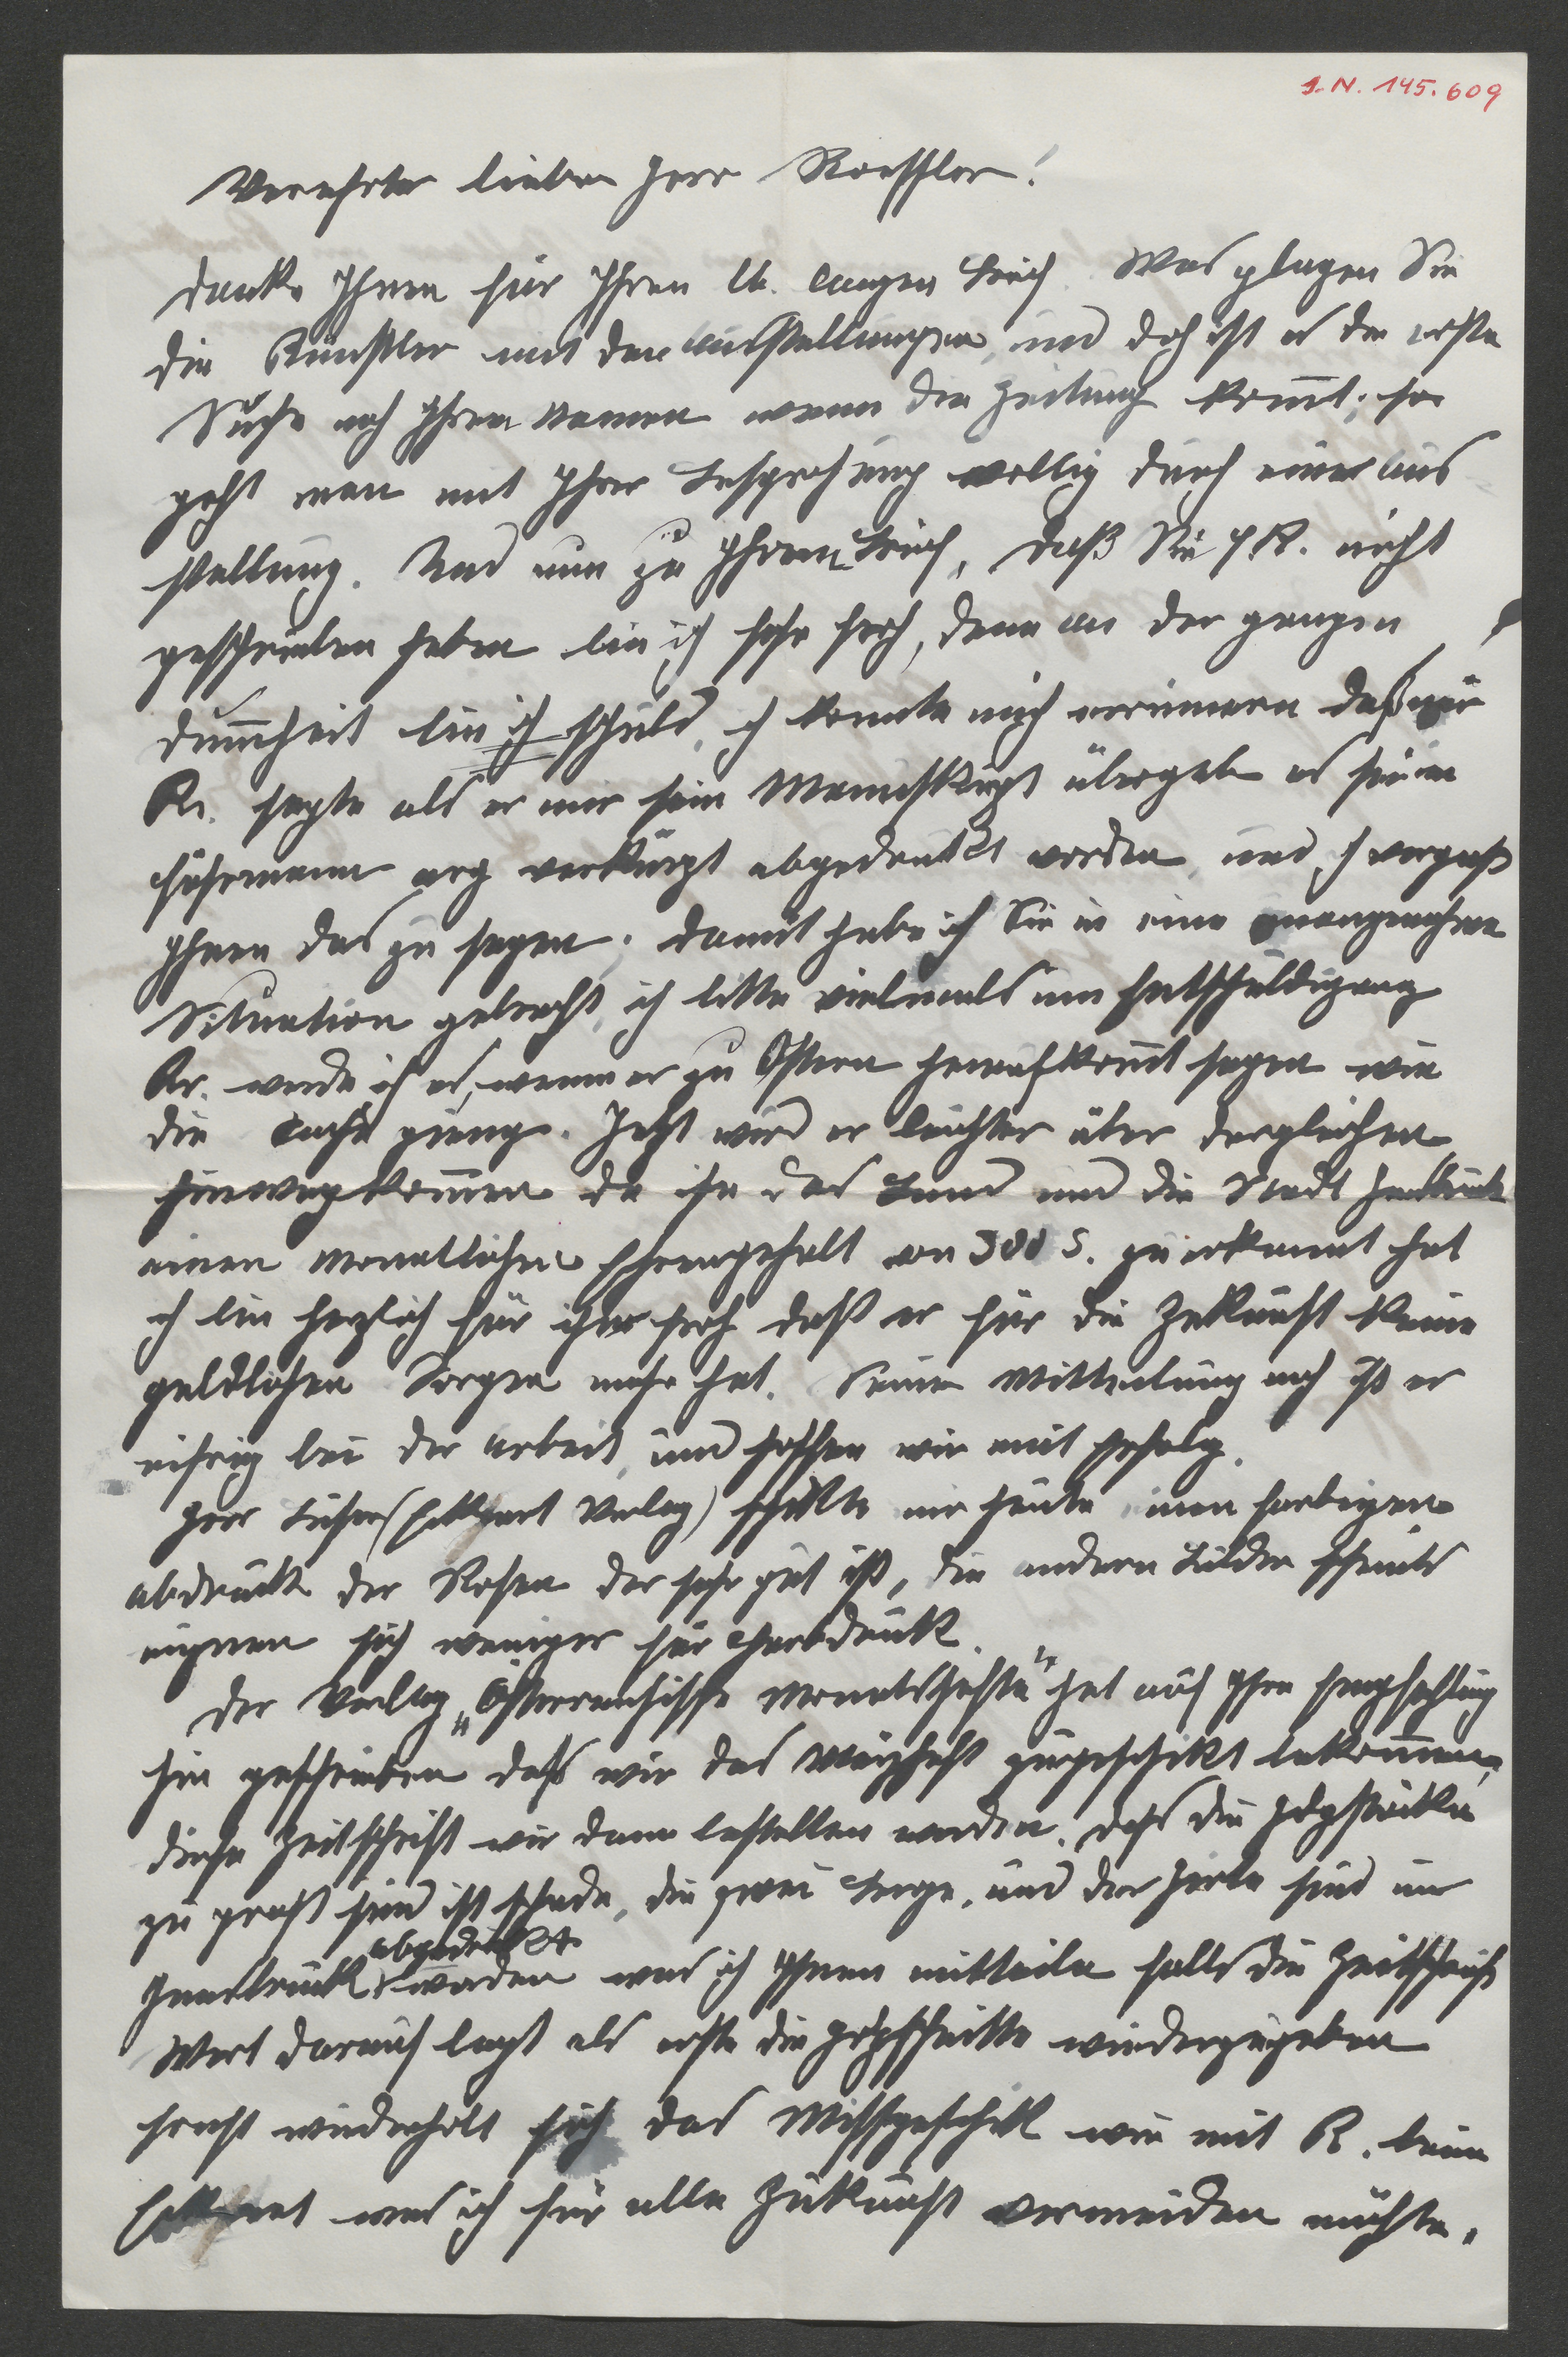 I.N. 145.609
Verehrter lieber Herr Roessler!
Danke Ihnen für Ihren lb. langen Brief. Was plagen Sie
die Künstler mit den Ausstellungen, und doch ist es die erste
Suche nach Ihren Namen wenn die Zeitung kommt; so
geht man mit Ihrer Besprechung völlig durch eine Aus
stellung. Und nun zu Ihrem Brief, daß Sie P.R. nicht
geschrieben haben bin ich sehr froh, denn an der ganzen
Dummheit bin ich schuld, ich konnte mich errinnern daß mir
Kr. sagte als er mir sein Manuskript übergab es sei im
Fuhrmann arg verkürzt abgedruckt worden, und ich vergaß
Ihnen das zu sagen; damit habe ich Sie in eine unangenehme
Situation gebracht, ich bitte vielmals um Entschuldigung
Kr. werde ich es, wenn er zu Ostern heraufkommt sagen wie
die Sache gieng. Jetzt wird er leichter über dergleichen
hinwegkommen da ihm das Land und die Stadt Innsbruck
einen monatlichen Ehrengehalt von 300 S. zuerkannt hat
ich bin herzlich für ihn froh daß er für die Zukunft keine
geldlichen Sorgen mehr hat. Seiner Mitteilung nach ist er
eifrig bei der Arbeit, und hoffen wir mit Erfolg.
Herr (Eckhart Verlag) schickte mir heute einen farbigen
Abdruck der Rosen der sehr gut ist, die andern Bilder scheints
eignen sich weniger für Farbdruck.
Der Verlag „Österreichische Monatshefte" hat auf Ihre Empfehlung
hin geschrieben daß wir das Märzheft zugeschickt bekommen,
diese Zeitschrift wir dann bestellen werden. Daß die Holzstöcke
zu groß sind ist schade, die zwei Berge, und der Hirte sind in
Innsbruck abgedruckt worden was ich Ihnen mitteile falls die Zeitschrift
Wert darauf legt als erste die Holzschnitte wiederzugeben
sonst wiederholt sich das Missgeschick wie mit R. beim
Eckhart was ich für alle Zukunft vermeiden möchte.